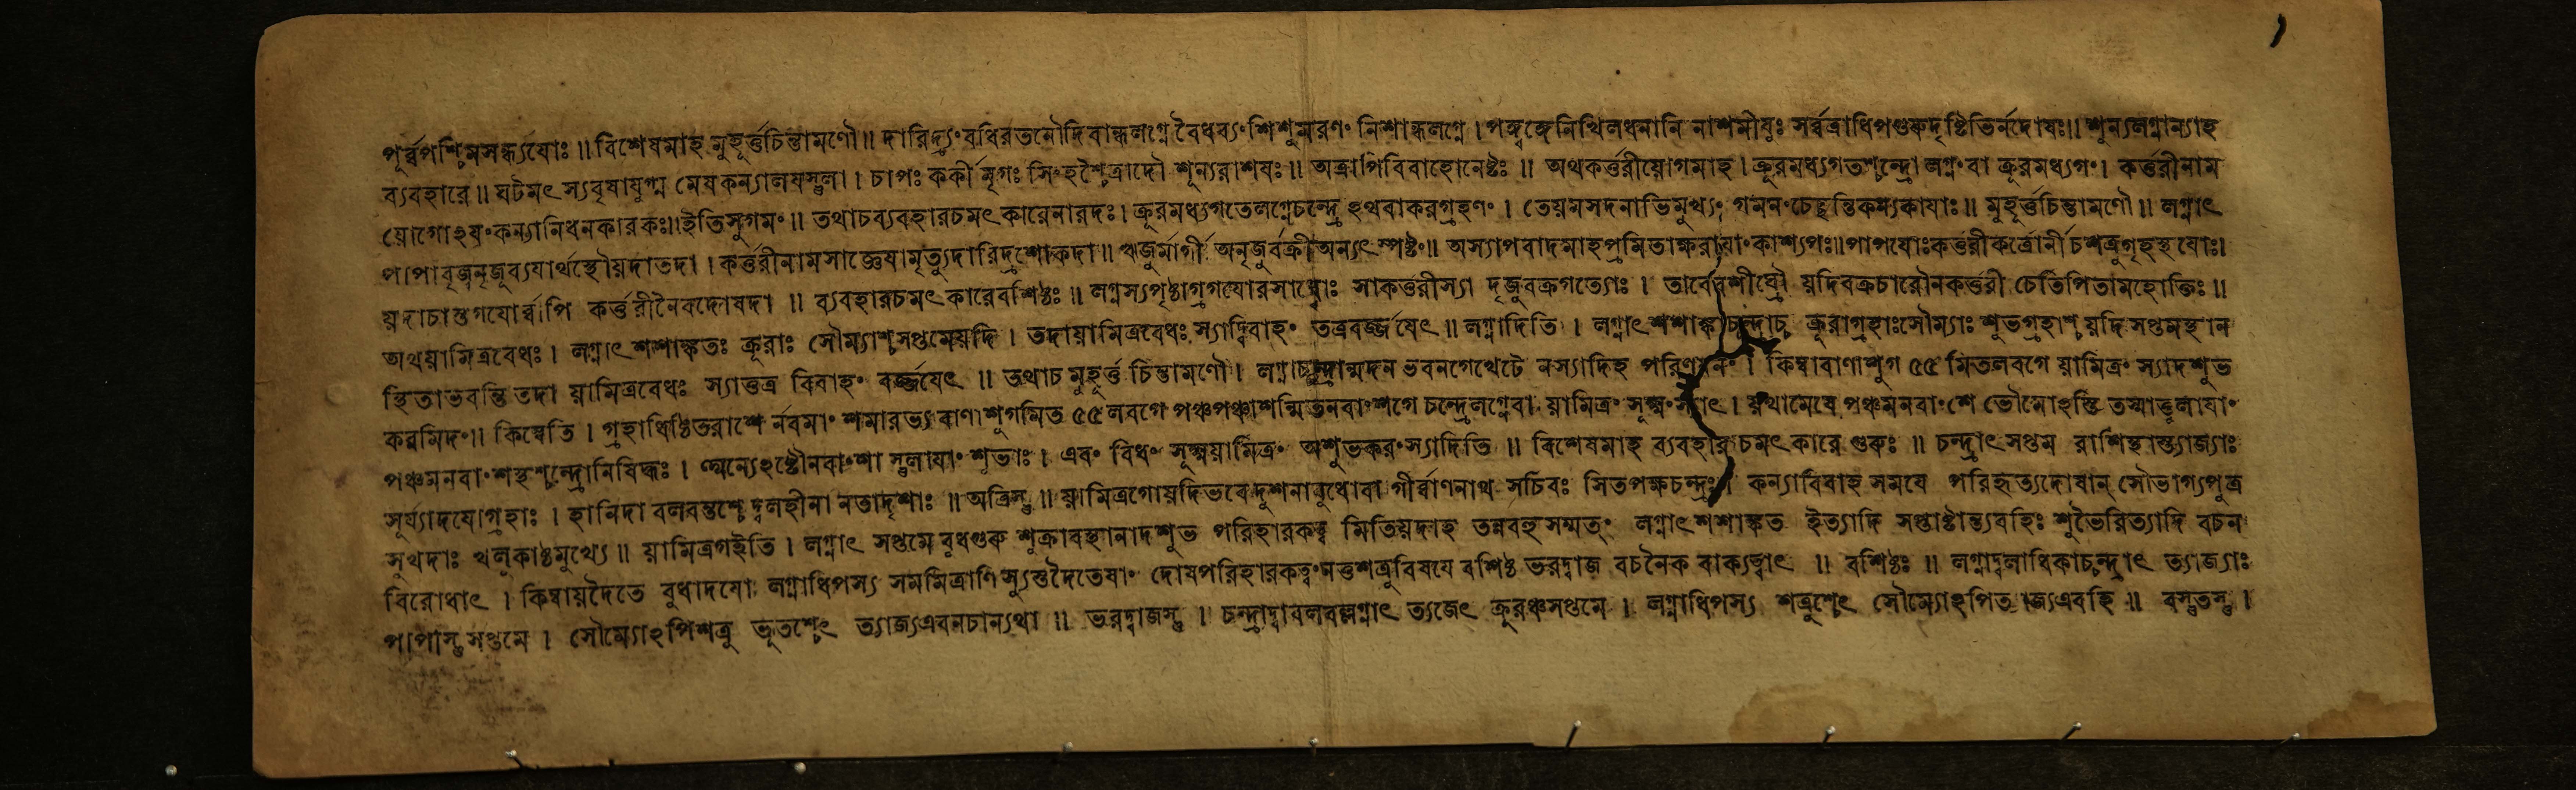 পূর্ব্বপশ্চিমসন্ধ্যযোঃ ॥ বিশেষমাহ মুহূর্ত্তচিন্তামণৌ ॥ দারিদ্র্যং বধিরতনৌদিবান্ধলগ্নে বৈধব্যং শিশুমরণং নিশান্ধলগ্নে । পঙ্গ্বঙ্গেনিখিলধনানি নাশমীযুঃ সর্ব্বত্রাধিপগুরুদৃষ্টিভির্নদোষঃ ॥ শূন্যলগ্নান্যাহ
ব্যবহারে ॥ ঘটমৎস্যবৃষাযুগ্ম মেষকন্যালযস্তুলা । চাপঃ কর্কী মৃগঃ সিংহশ্চৈত্রাদৌ শূন্যরাশযঃ ॥ অত্রাপিবিবাহোনেষ্টঃ ॥ অথকর্ত্তরীয়োগমাহ । ক্রূরমধ্যগতশ্চন্দ্রো লগ্নং বা ক্রূরমধ্যগং । কর্ত্তরীনাম
য়োগোঽযং কন্যানিধনকারকঃ ॥ ইতিসুগমং ॥ তথাচব্যবহারচমৎকারেনারদঃ । ক্রূরমধ্যগতেলগ্নেচন্দ্রেঽথবাকরগ্রহণং । তেয়মসদনাভিমুখ্যং গমনংচেহন্তিকন্যকাযাঃ ॥ মুহূর্ত্তচিন্তামণৌ ॥ লগ্নাৎ
পাপাবৃজ্বনৃজূব্যযার্থস্থৌয়দাতদা । কর্ত্তরীনামসাজ্ঞেযামৃত্যুদারিদ্রশোকদা ॥ ঋজুর্মার্গী অনৃজুর্বক্রী অন্যৎ স্পষ্টং ॥ অস্যাপবাদমাহপ্রমিতাক্ষরাযাং কাশ্যপঃ ॥ পাপযোঃকর্ত্তরীকর্ত্রোর্নীচশত্রুগৃহস্থযোঃ ।
য়দাচাস্তগযোর্ব্বাপি কর্ত্তরীনৈবদোষদা ॥ ব্যবহারচমৎকারেবশিষ্ঠঃ ॥ লগ্নস্যপৃষ্ঠাগ্রগযোরসাধ্বোঃ সাকর্ত্তরীস্যা দৃজুবক্রগত্যোঃ । তাবেবশীঘ্রৌ য়দিবক্রচারৌনকর্ত্তরী চেতিপিতামহোক্তিঃ ॥
অথয়ামিত্রবেধঃ । লগ্নাৎ শশাঙ্কতঃ ক্রূরাঃ সৌম্যাশ্চসপ্তমেয়দি । তদায়ামিত্রবেধঃ স্যাদ্বিবাহং তত্রবর্জ্জযেৎ ॥ লগ্নাদিতি । লগ্নাৎ শশাঙ্কাচন্দ্রাচ্চ ক্রূরাগ্রহাঃসৌম্যাঃ শুভগ্রহাশ্চ য়দিসপ্তমস্থান
স্থিতাভবন্তি তদা য়ামিত্রবেধঃ স্যাত্তত্র বিবাহং বর্জ্জযেৎ ॥ তথাচ মুহূর্ত্ত চিন্তামণৌ । লগ্নাচ্চন্দ্রান্মদন ভবনগেখেটে নস্যাদিহ পরিণযনং । কিম্বাবাণাশুগ ৫৫ মিতলবগে য়ামিত্রং স্যাদশুভ
করমিদং ॥ কিম্বেতি । গ্রহাধিষ্ঠিতরাশে র্নবমাংশমারভ্য বাণাশুগমিত ৫৫ লবগে পঞ্চপঞ্চাশন্মিতনবাংশগে চন্দ্রেলগ্নেবা য়ামিত্রং সূক্ষ্মং স্যাৎ । য়থামেষে পঞ্চমনবাংশে ভৌমোঽস্তি তস্মাত্তুলাযাং
পঞ্চমনবাংশস্থশ্চন্দ্রোনিষিদ্ধঃ । অন্যেঽষ্টৌনবাংশা স্তুলাযাং শুভাঃ । এবং বিধং সূক্ষ্ময়ামিত্রং অশুভকরং স্যাদিতি ॥ বিশেষমাহ ব্যবহার চমৎকারে গুরুঃ ॥ চন্দ্রাৎ সপ্তম রাশিস্থাস্ত্যাজ্যাঃ
সূর্য্যাদযোগ্রহাঃ । হানিদা বলবন্তশ্চেদ্বলহীনা নতাদৃশাঃ ॥ অত্রিস্তু ॥ য়ামিত্রগোয়দিভবেদুশনাবুধোবা গীর্ব্বাণনাথ সচিবঃ সিতপক্ষচন্দ্রঃ । কন্যাবিবাহ সমযে পরিহৃত্যদোষান্ সৌভাগ্যপুত্র
সুখদাঃ খলুকাষ্ঠমুখ্যে ॥ য়ামিত্রগইতি । লগ্নাৎ সপ্তমে বুধগুরু শুক্রাবস্থানাদশুভ পরিহারকত্ব মিতিয়দাহ তন্নবহুসম্মতং লগ্নাৎ শশাঙ্কত ইত্যাদি সপ্তাষ্টান্ত্যবহিঃ শুভৈরিত্যাদি বচন
বিরোধাৎ । কিম্বায়দৈতে বুধাদযো লগ্নাধিপস্য সমমিত্রাণিস্যুস্তদৈতেষাং দোষপরিহারকত্বং নতুশত্রুবিষযে বশিষ্ঠ ভরদ্বাজ বচনৈক বাক্যত্বাৎ ॥ বশিষ্ঠঃ ॥ লগ্নাদ্বলাধিকাচন্দ্রাৎ ত্যাজ্যাঃ
পাপাস্তু সপ্তমে । সৌম্যোঽপিশত্রু ভূতশ্চেৎ ত্যাজ্যএবনচান্যথা ॥ ভরদ্বাজস্তু । চন্দ্রাদ্বাবলবল্লগ্নাৎ ত্যজেৎ ক্রূরঞ্চসপ্তমে । লগ্নাধিপস্য শত্রুশ্চেৎ সৌম্যোঽপিত্যাজ্যএবহি ॥ বস্তুতস্তু ।